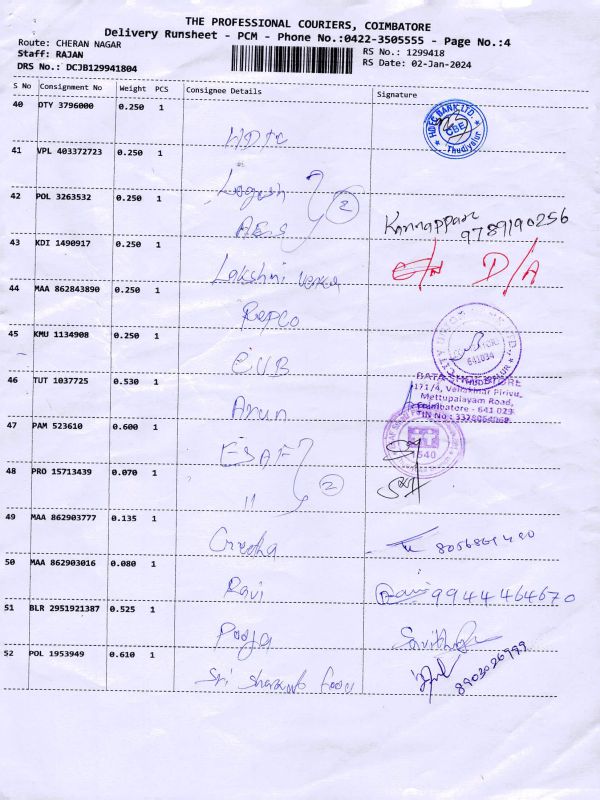 THE PROFESSIONAL COURIERS, COIMBATORE
Delivery Runsheet - PCM - Phone No.:0422-3505555 - Page No.:4
Route: CHERAN NAGAR RS No.: 1299418
Staff: RAJAN RS Date: 02-Jan-2024
DRS No.: DCJB129941804
S No Consignment No Weight PCS Consignee Details Signature
40 DTY 3796000 0.250 1
HDFC
HDFC BANK LTD. CBE Thudiyalur
41 VPL 403372723 0.250 1
Logesh
42 POL 3263532 0.250 1
AES 2
Kannappan
9789190256
43 KDI 1490917 0.250 1
Lakshmi
D/A
44 MAA 862843890 0.250 1
Repco
45 KMU 1134908 0.250 1
CUB
641034
BATA SHOE STORE
171/4, Vellakinar Pirivu,
Mettupalayam Road,
Coimbatore - 641 029
46 TUT 1037725 0.530 1
Arun
47 PAM 523610 0.600 1
ESAF
48 PRO 15713439 0.070 1
11 2
49 MAA 862903777 0.135 1
50 MAA 862903016 0.080 1
Ravi
Ravi 9944464670
51 BLR 2951921387 0.525 1
Pooja
52 POL 1953949 0.610 1
Sri
8903026999